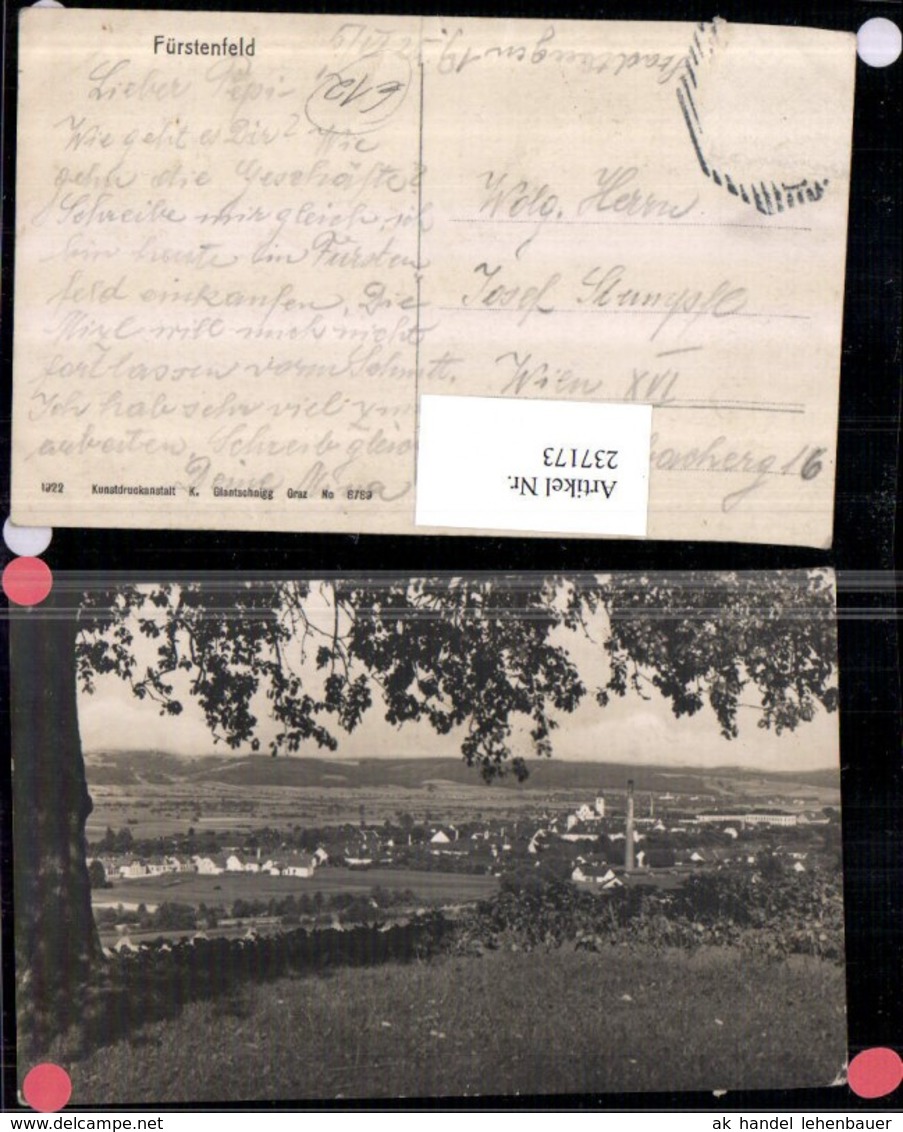 Fürstenfeld
612
Lieber Pepi
Wie geht es Dir? Wie
gehn die Geschäfte?
Schreibe mir gleich, ich
bin heute in Fürsten
feld einkaufen, Die
Mizl will mich nicht
fortlassen vorm Schnitt.
Ich hab sehr viel zum
arbeiten, Schreib gleich
Deine
Wolg. Herrn
Josef Stumpfl
Wien XVI
16
Artikel Nr.
237173
1922 Kunstdruckanstalt K. Glantschnigg Graz No 8789
ak handel lehenbauer